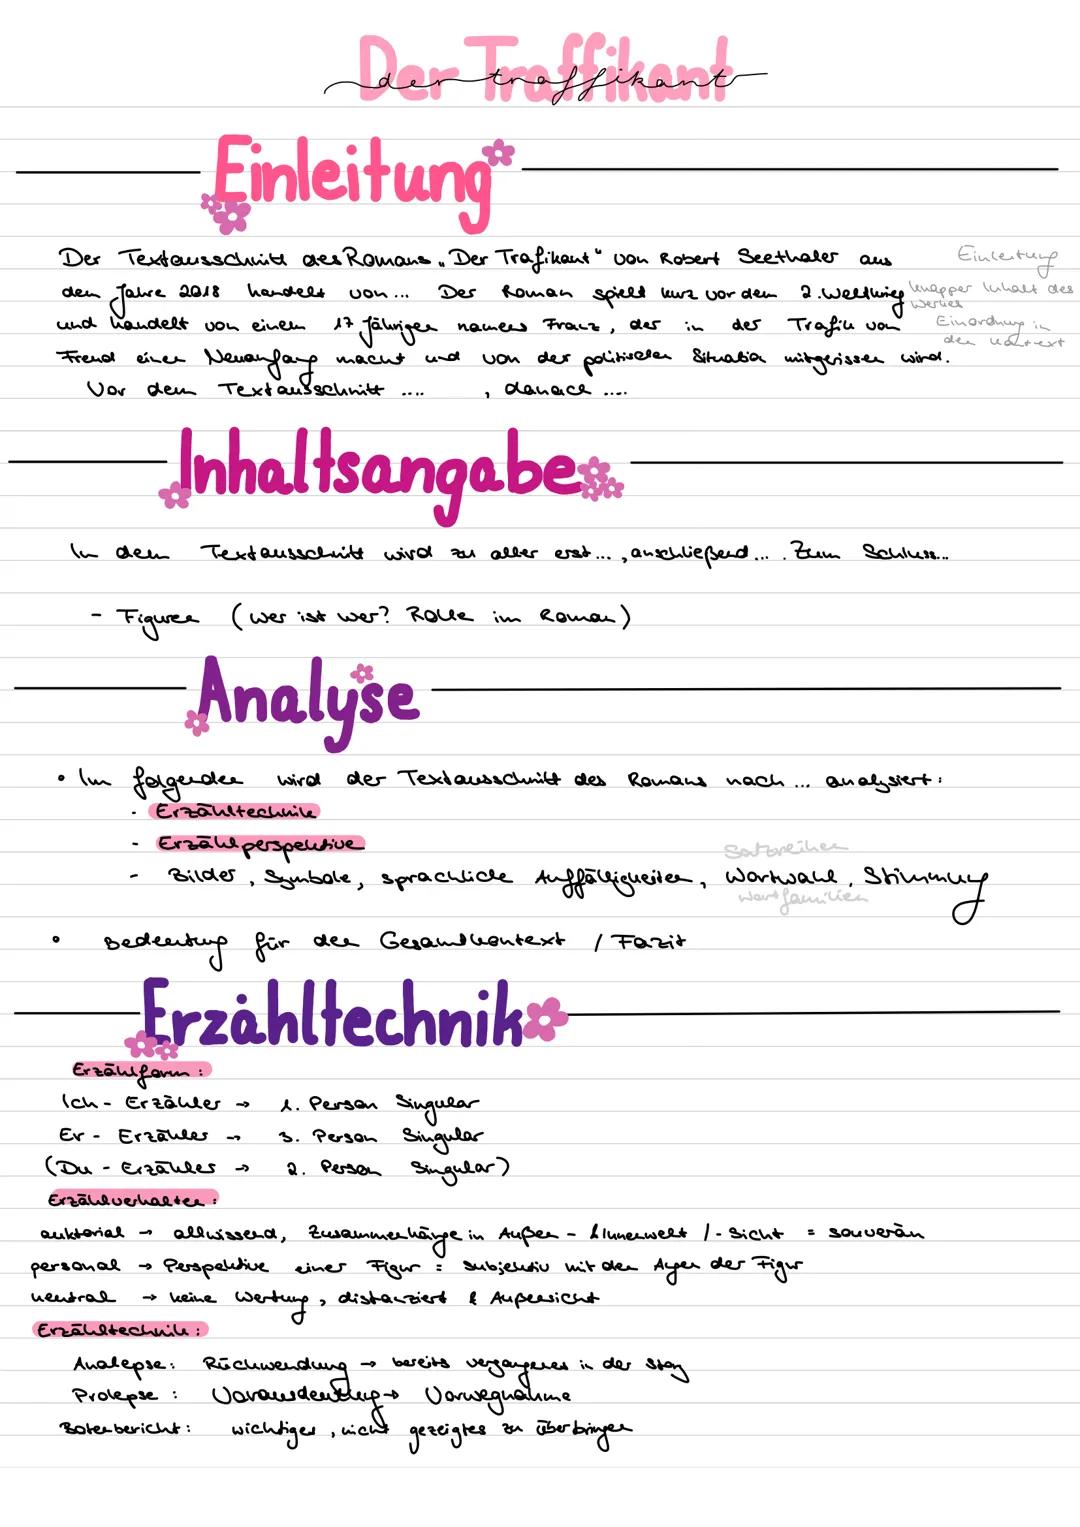 Der Traffikant
der traffikant
Einleitung
Der Textausschnitt des Romans „Der Trafikant" von Robert Seethaler aus
Einleitung
dem Jahre 2018 handelt von... Der Roman spielt kurz vor dem 2. Weltkrieg
knapper Inhalt des
Werkes
und handelt von einem 17 Jährigen namens Franz, der in der Trafik von
Einordnung in
den Kontext
Freud einen Neuanfang macht und von der politischen Situation mitgerissen wird.
Vor dem Textausschnitt .... , danach ....
Inhaltsangabe
In dem Textausschnitt wird zu aller erst ... , anschließend ... . Zum Schluss...
- Figuren (wer ist wer? Rolle im Roman)
Analyse
• Im folgenden wird der Textausschnitt des Romans nach ... analysiert:
- Erzähltechnik
- Erzählperspektive
Satzreihen
- Bilder, Symbole, sprachliche Auffälligkeiten, Wortwahl, Stimmung
Wortfamilien
• Bedeutung für den Gesamtkontext / Fazit
Erzähltechnik
Erzählform:
Ich - Erzähler → 1. Person Singular
Er - Erzähler → 3. Person Singular
(Du - Erzähler → 2. Person Singular)
Erzählverhalten:
auktorial → allwissend, Zusammenhänge in Außen - & Innenwelt /- Sicht = souverän
personal → Perspektive einer Figur = subjektiv mit den Augen der Figur
neutral → keine Wertung, distanziert & Außensicht
Erzähltechnik:
Analepse: Rückwendung → bereits vergangenes in der Story
Prolepse: Vorausdeutung → Vorwegnahme
Botenbericht: wichtiges, nicht gezeigtes zu überbringen